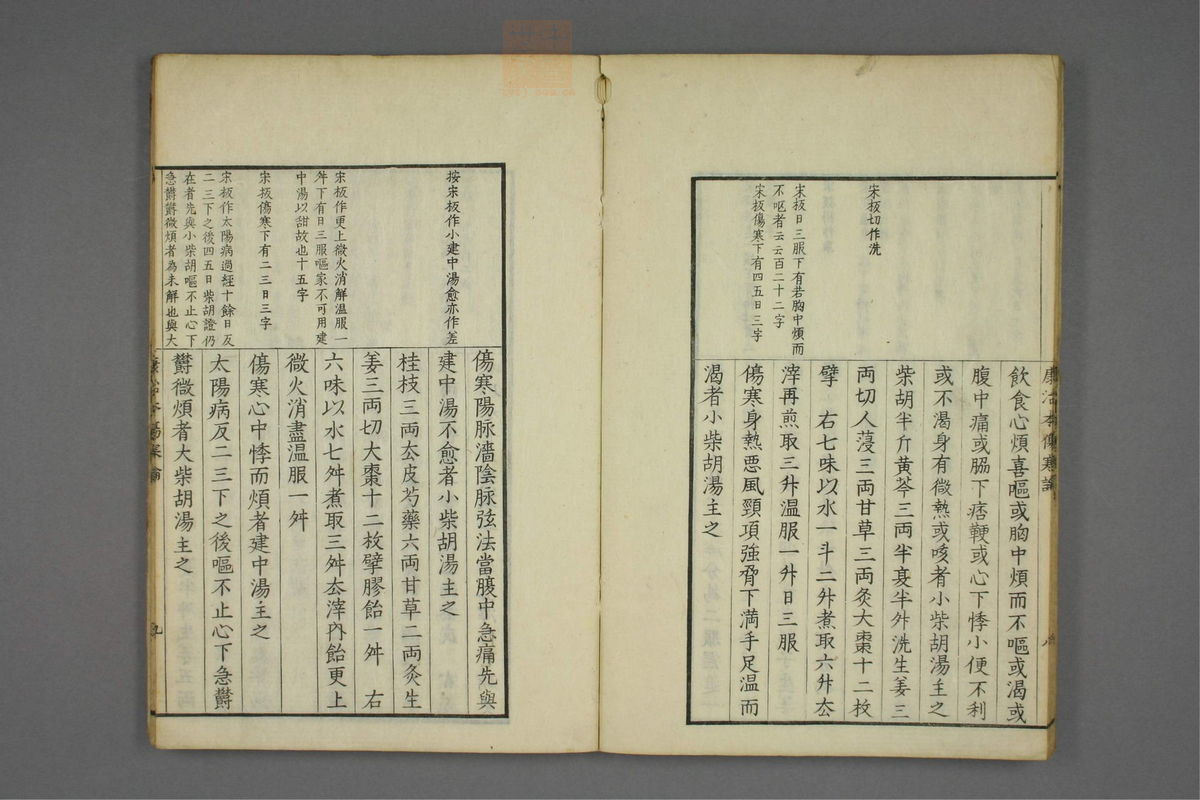 康治本傷寒論
八
飲食心煩喜嘔或胸中煩而不嘔或渴或
腹中痛或脇下痞鞕或心下悸小便不利
或不渴身有微熱或咳者小柴胡湯主之
柴胡半斤黃芩三兩半夏半升洗生姜三
両切人蓡三両甘草三両灸大棗十二枚
擘　右七味以水一斗二升煮取六升厺
滓再煎取三升温服一升日三服
傷寒身熱悪風頸項強脅下満手足温而
渴者小柴胡湯主之
宋板切作洗
宋板日三服下有若胸中煩而
不呕者云云百二十二字
宋板傷寒下有四五日三字
傷寒陽脉濇陰脉弦法當腹中急痛先與
建中湯不愈者小柴胡湯主之
桂枝三両厺皮芍藥六両甘草二両灸生
姜三両切大棗十二枚擘膠飴一舛　右
六味以水七舛煮取三舛厺滓內飴更上
微火消盡温服一舛
傷寒心中悸而煩者建中湯主之
太陽病反二三下之後嘔不止心下急欝
欝微煩者大柴胡湯主之
按宋板作小建中湯愈亦作差
宋板作更上微火消解温服一
舛下有日三服嘔家不可用建
中湯以甜故也十五字
宋板傷寒下有二三日三字
宋板作太陽病過経十餘日反
二三下之後四五日柴胡證仍
在者先與小柴胡嘔不止心下
急欝欝微煩者為未解也與大
康治本傷寒論
九